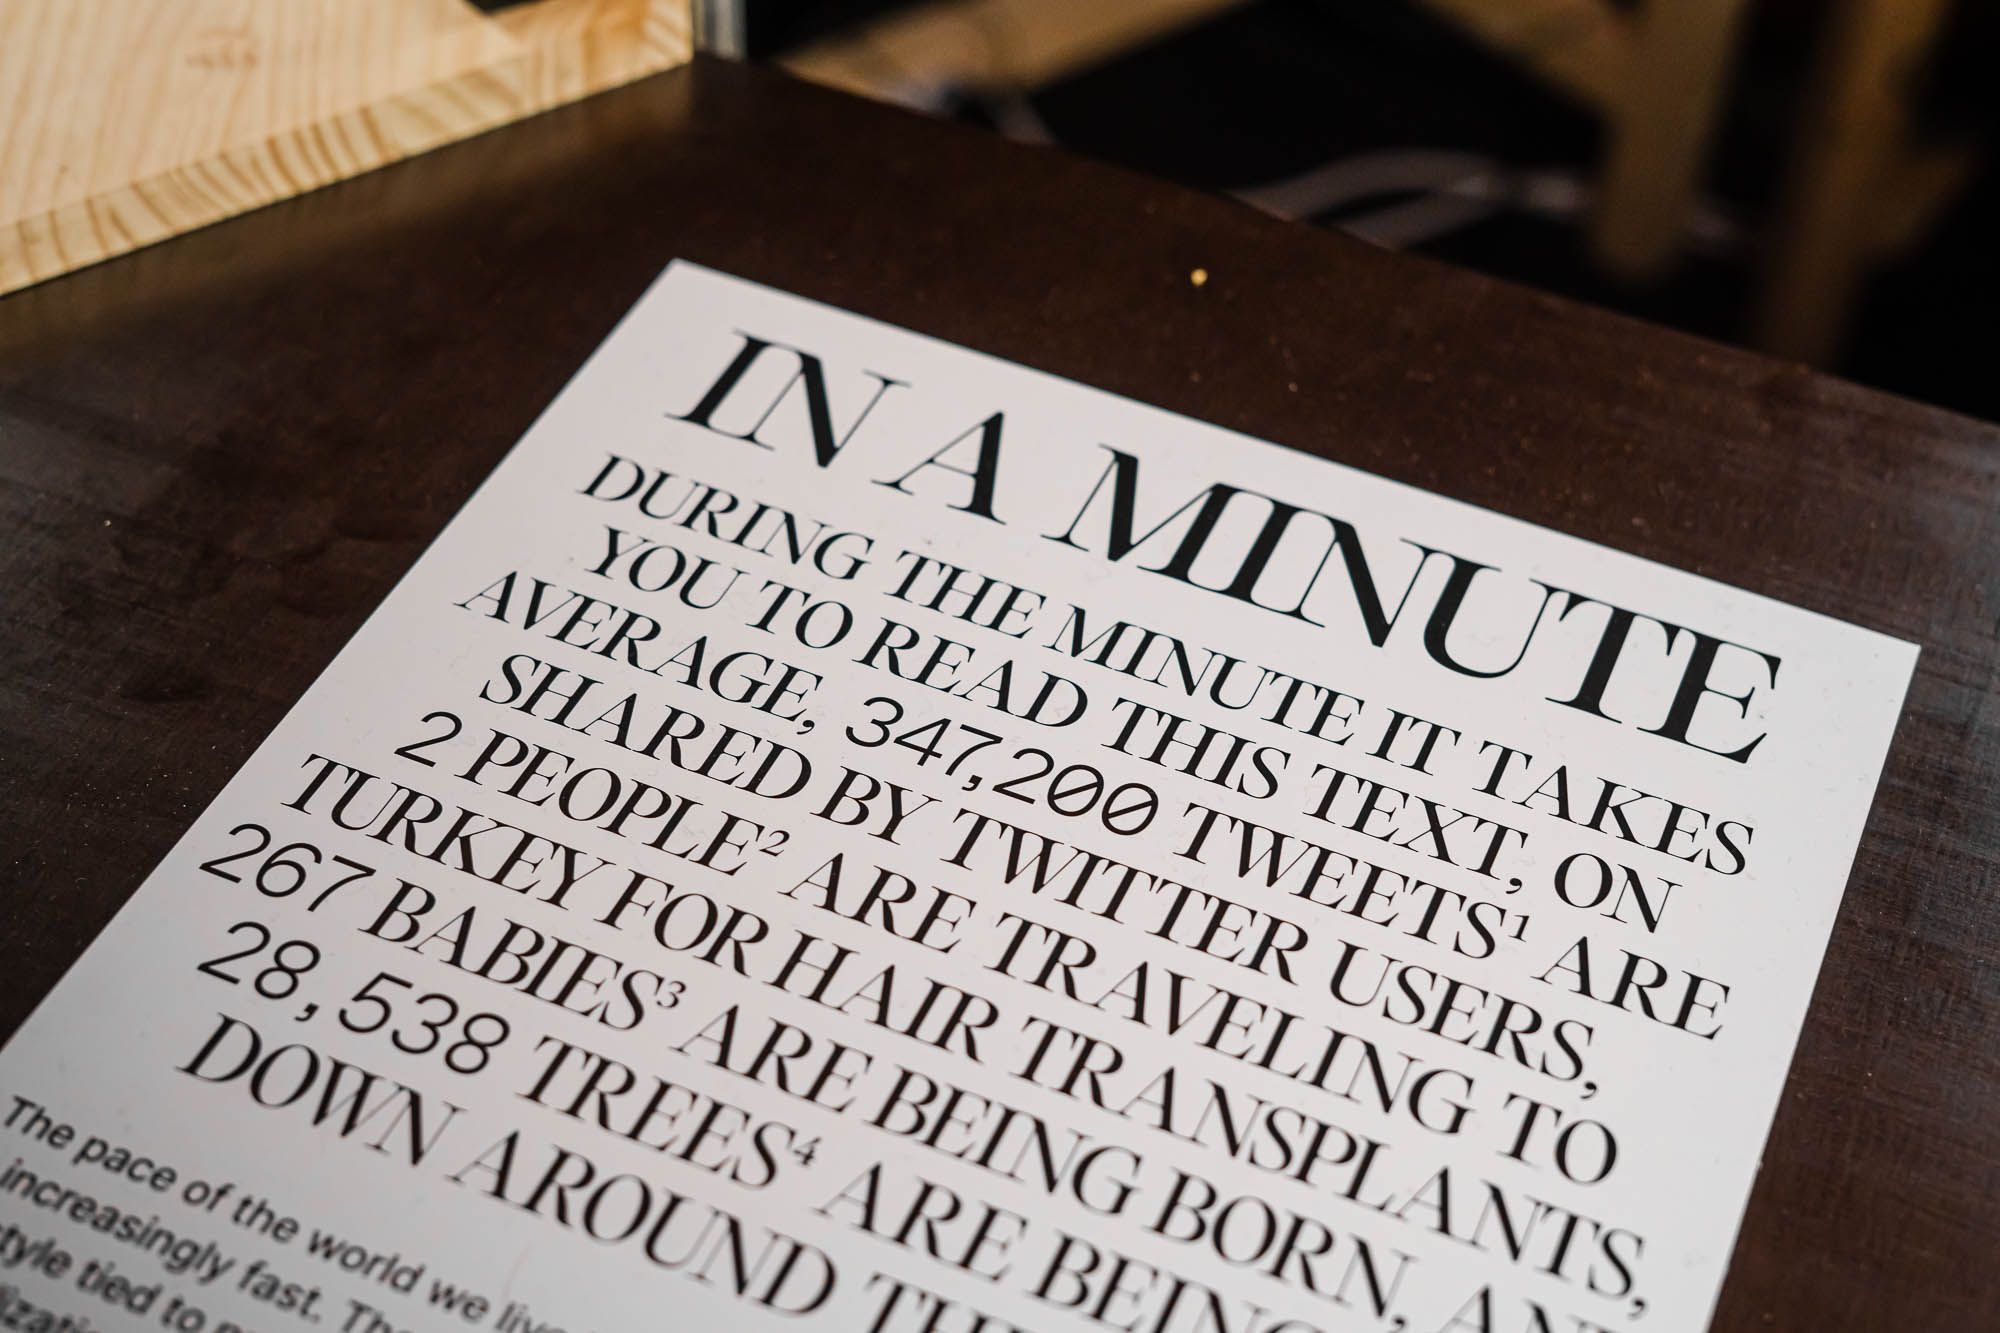 IN A MINUTE
DURING THE MINUTE IT TAKES
YOU TO READ THIS TEXT, ON
AVERAGE, 347,200 TWEETS¹ ARE
SHARED BY TWITTER USERS,
2 PEOPLE² ARE TRAVELING TO
TURKEY FOR HAIR TRANSPLANTS,
267 BABIES³ ARE BEING BORN,
28,538 TREES⁴ ARE BEING
DOWN AROUND
The pace of the world we
increasingly fast.
tied to